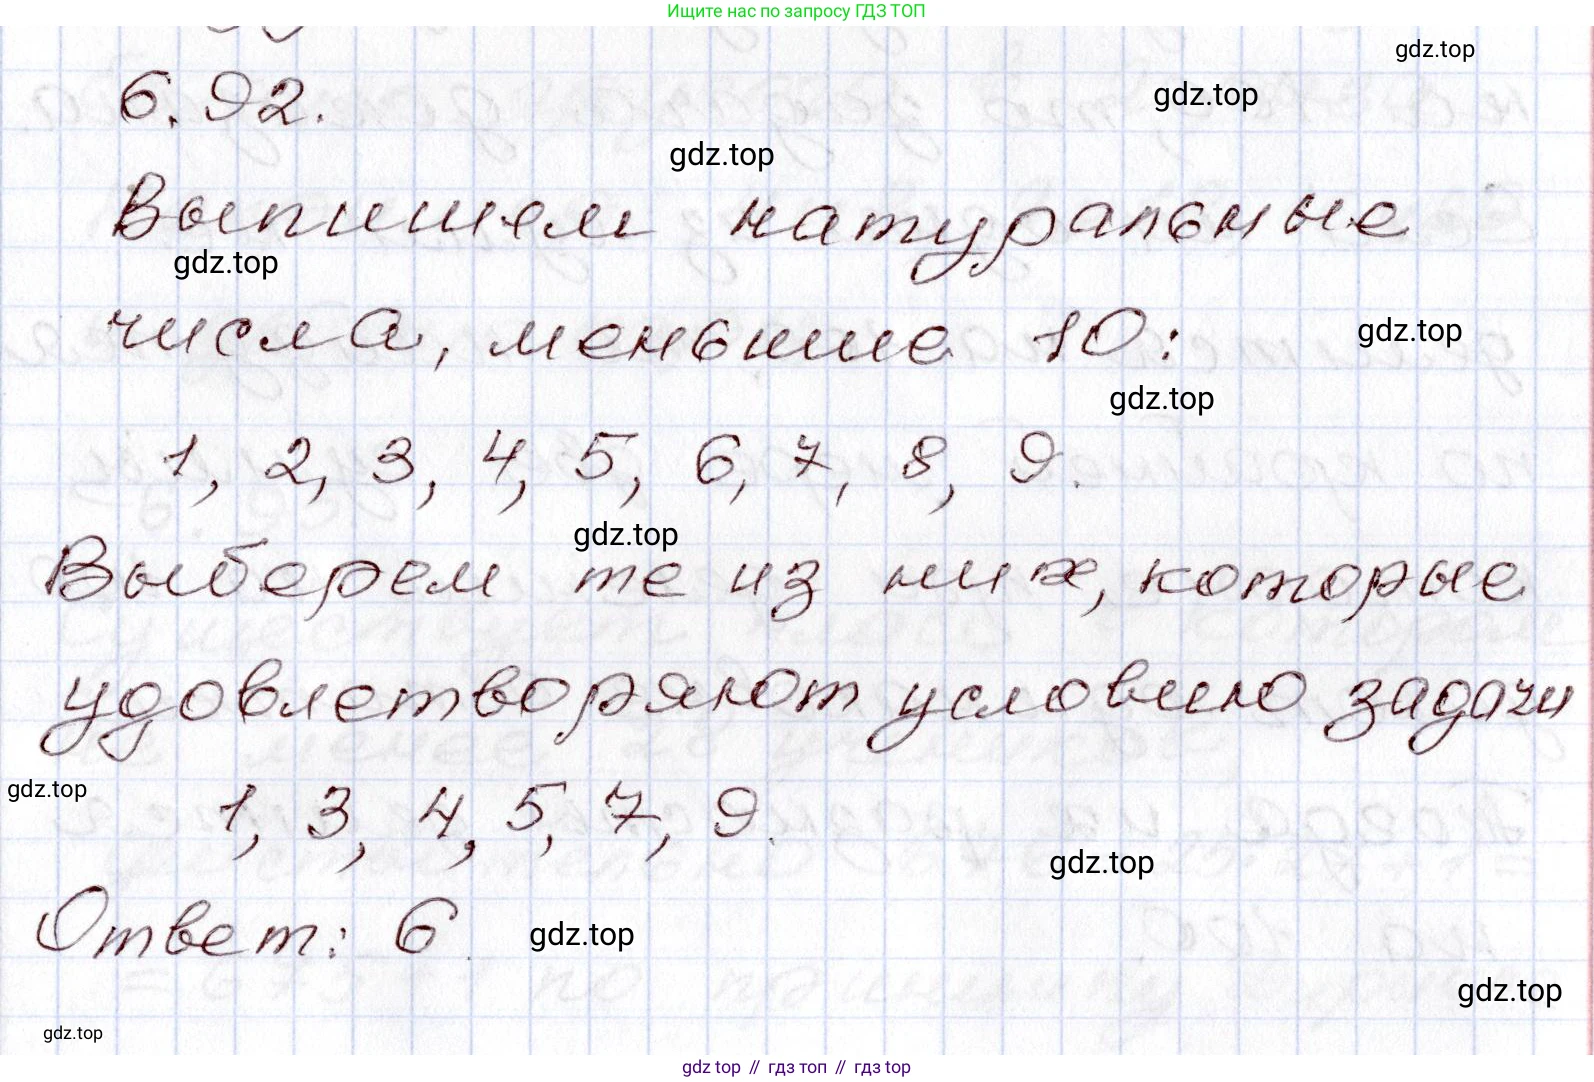 Ищите нас по запросу ГДЗ ТОП
gdz.top
6.92.
gdz.top
gdz.top
Выпишем натуральные
gdz.top
числа, меньшие 10:
gdz.top
gdz.top
1, 2, 3, 4, 5, 6, 7, 8, 9.
gdz.top
Выберем те из них, которые
удовлетворяют условию задачи
gdz.top
1, 3, 4, 5, 7, 9.
gdz.top
Ответ: 6.
gdz.top
gdz.top
gdz.top
gdz top // гдз топ // gdz.top